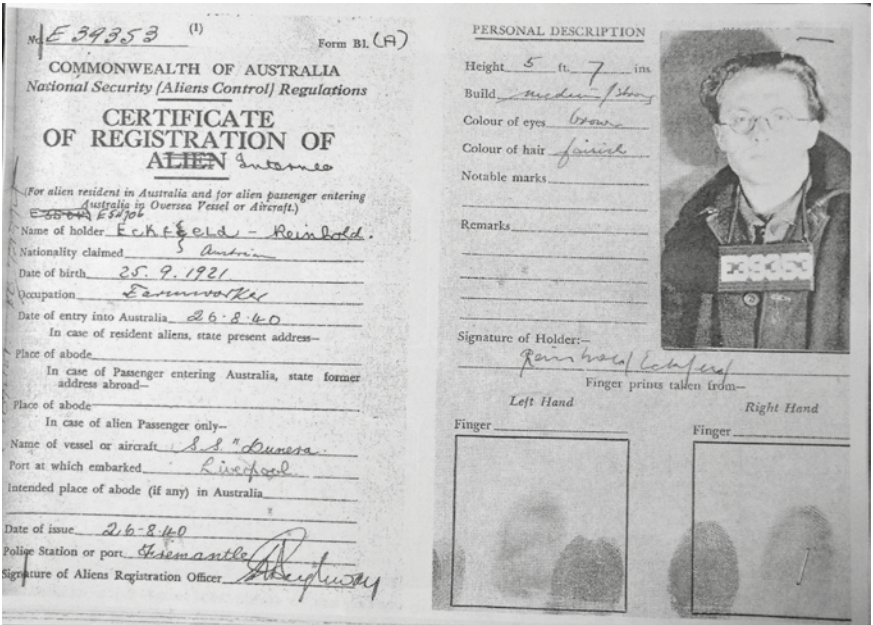 No. E 39353 (1)
Form B1. (A)
COMMONWEALTH OF AUSTRALIA
National Security (Aliens Control) Regulations
CERTIFICATE
OF REGISTRATION OF
ALIEN Internee
(For alien resident in Australia and for alien passenger entering
Australia in Oversea Vessel or Aircraft.)
Name of holder ECKFELD - Reinhold.
Nationality claimed Austrian
Date of birth 25. 9. 1921
Occupation Farmworker
Date of entry into Australia 26-8-40
In case of resident aliens, state present address—
Place of abode
In case of Passenger entering Australia, state former
address abroad—
Place of abode
In case of alien Passenger only—
Name of vessel or aircraft S.S. "Dunera.
Port at which embarked Liverpool
Intended place of abode (if any) in Australia
Date of issue 26-8-40
Police Station or port Fremantle
Signature of Aliens Registration Officer
PERSONAL DESCRIPTION
Height 5 ft. 7 ins
Build medium / strong
Colour of eyes brown
Colour of hair fairish
Notable marks
Remarks
E39353
Signature of Holder:—
Reinhold Eckfeld
Finger prints taken from—
Left Hand
Right Hand
Finger
Finger